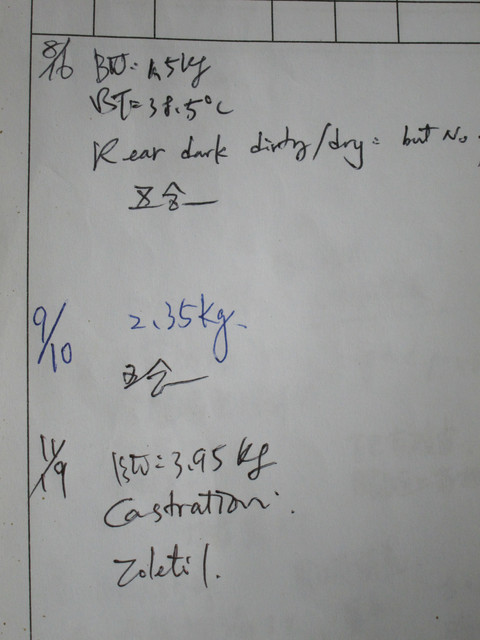 8/16 BW: 1.5kg
BT=38.5°C
R ear dark dirty/dry: but No
五合一
9/10 2.35kg.
五合一
11/9 BW=3.95 kg
Castration.
Zoletil.